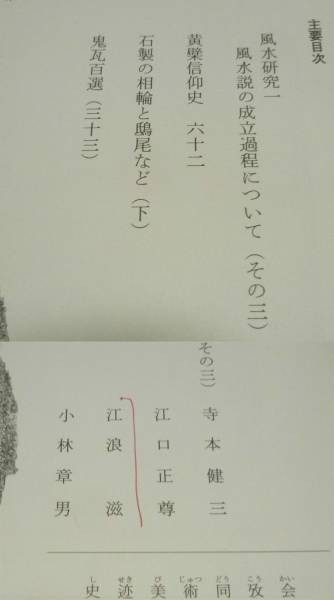 主要目次
風水研究一
風水説の成立過程について(その三)
黄檗信仰史 六十二
石製の相輪と鴟尾など(下)
鬼瓦百選(三十三)
その三)
寺本健三
江口正尊
江浪 滋
小林章男
し せき び じゅつ どう こう かい
史迹美術同攷会